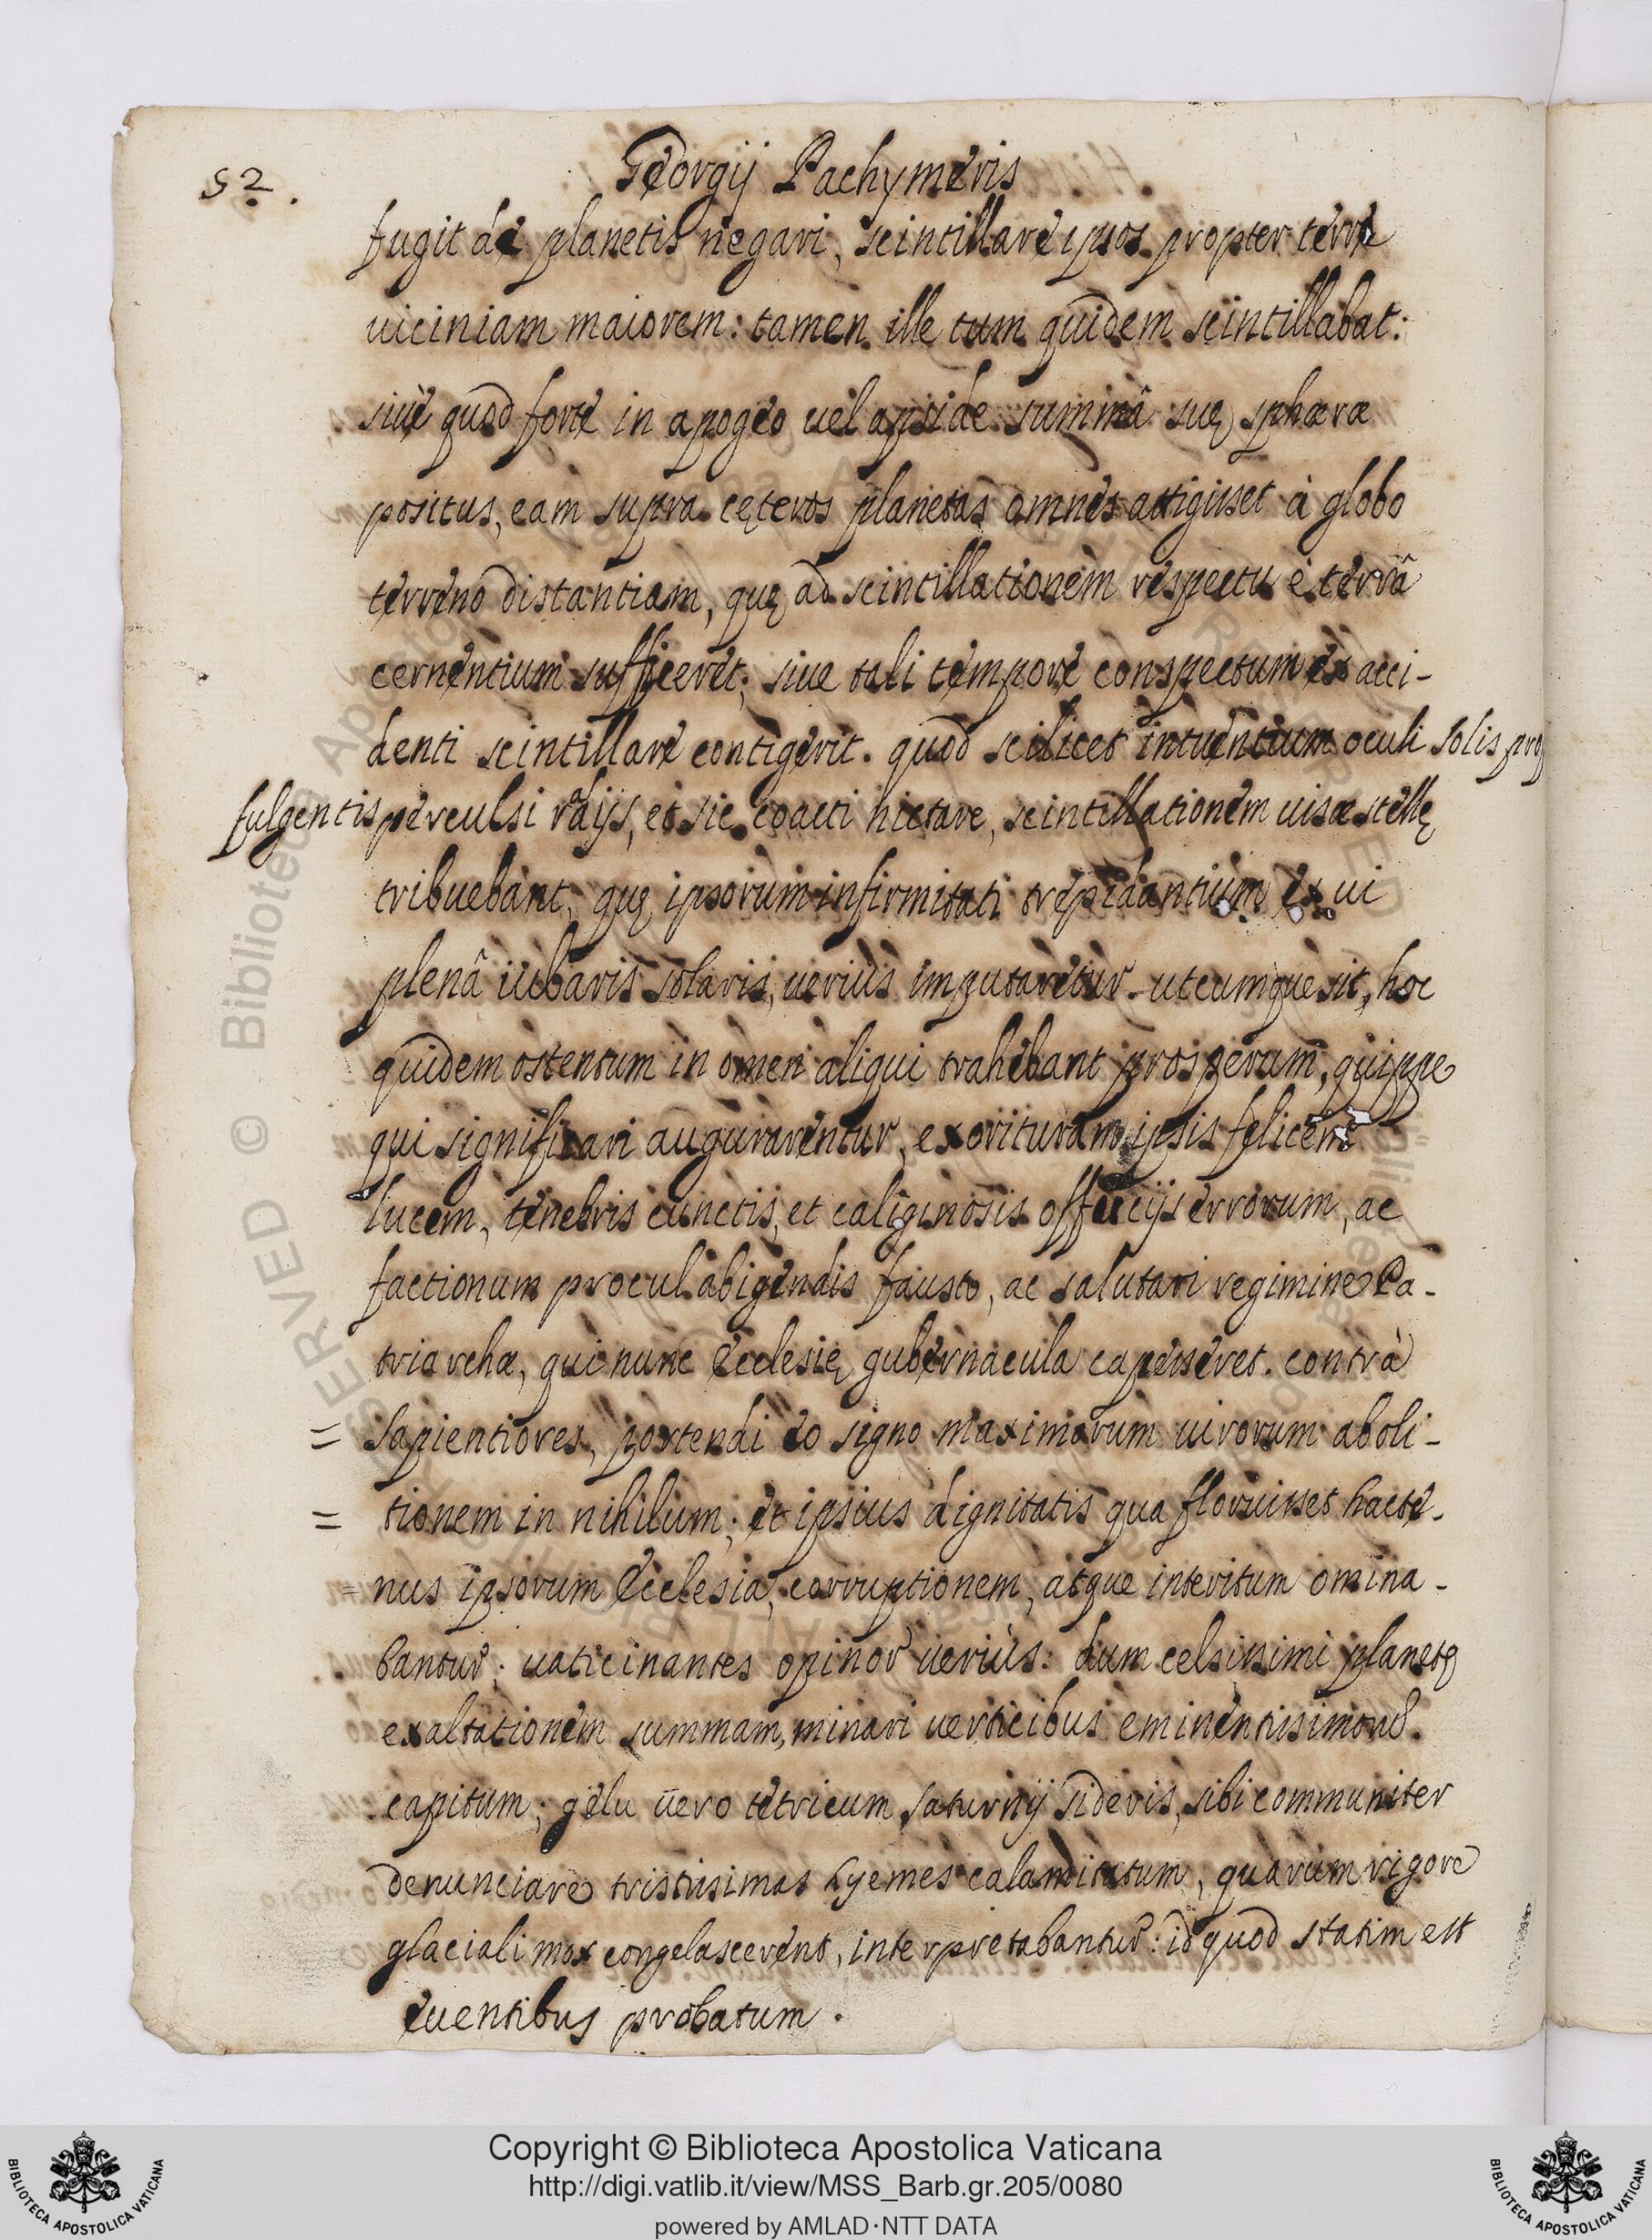 52.
Georgij Pachymeris
fugit de planetis negari, scintillare ipsos propter terrę
uiciniam maiorem: tamen ille tum quidem scintillabat:
siue quod forte in apogeo uel apside summâ suę sphæræ
positus, eam supra cęteros planetas omnes attigisset à globo
terreno distantiam, quę ad scintillationem respectu è terrâ
cernentium sufficeret; siue tali tempore conspectum ex acci-
denti scintillare contigerit. quod scilicet intuentium oculi Solis prę
fulgentis perculsi radijs, et sic coacti nictare, scintillationem uisæ stellę
tribuebant, quę ipsorum infirmitati trepidantium ex ui
plenâ iubaris solaris, ueriùs imputaretur. utcumque sit, hoc
quidem ostentum in omen aliqui trahebant prosperum, quippe
qui significari augurarentur, exorituram ipsis felicem
lucem, tenebris cunctis, et caliginosis offucijs errorum, ac
factionum procul abigendis fausto, ac salutari regimine Pa-
triarchæ, qui nunc Ecclesię gubernacula capesseret. contrà
= Sapientiores, portendi eo signo maximorum uirorum aboli-
= tionem in nihilum; et ipsius dignitatis qua floruisset hacte-
= nus ipsorum Ecclesia, corruptionem, atque interitum omina-
bantur; uaticinantes opinor ueriùs: dum celsissimi planetę
exaltationem summam, minari uerticibus eminentissimorũ
capitum; gelu uero tetricum Saturnij Sideris, sibi communiter
denunciare tristissimas hyemes calamitatum, quarum rigore
glaciali mox congelascerent, interpretabantur: id quod statim est
euentibus probatum.
Copyright © Biblioteca Apostolica Vaticana
http://digi.vatlib.it/view/MSS_Barb.gr.205/0080
powered by AMLAD·NTT DATA
BIBLIOTECA APOSTOLICA VATICANA
BIBLIOTECA APOSTOLICA VATICANA